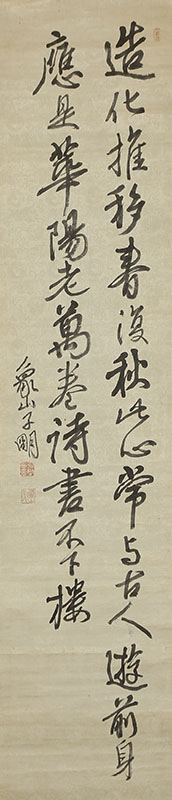 造化推移春復秋此心常与古人遊前身
應是華陽老萬巻詩書不下樓
象山子明